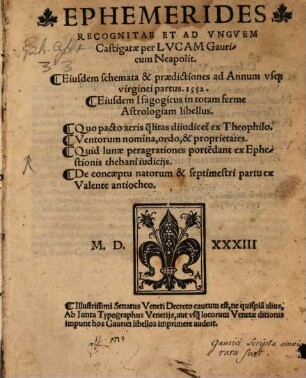 EPHEMERIDES
RECOGNITAE ET AD VNGVEM
Castigatæ per LVCAM Gauri-
cum Neapolit.
¶Eiusdem schemata & prædictiones ad Annum vsq;
virginei partus. 1552.
¶Eiusdem Isagogicus in totam ferme
Astrologiam libellus.
¶Quo pacto aeris q̃litas diiudicet̃ ex Theophilo.
¶Ventorum nomina, ordo, & proprietates.
¶Quid lunæ peragrationes portẽdant ex Ephe-
stionis thebani iudicijs.
¶De concæptu natorum & septimestri partu ex
Valente antiocheo.
M. D. XXXIII
L A
¶Illustrissimi Senatus Veneti Decreto cautum est, ne quispiã alius,
Ab Iunta Typographus Venetijs, aut vsq̃ locorum Venetæ ditionis
impune hos Gaurici libellos imprimere audeat.
Gaurici Scripta omnia
rara sunt